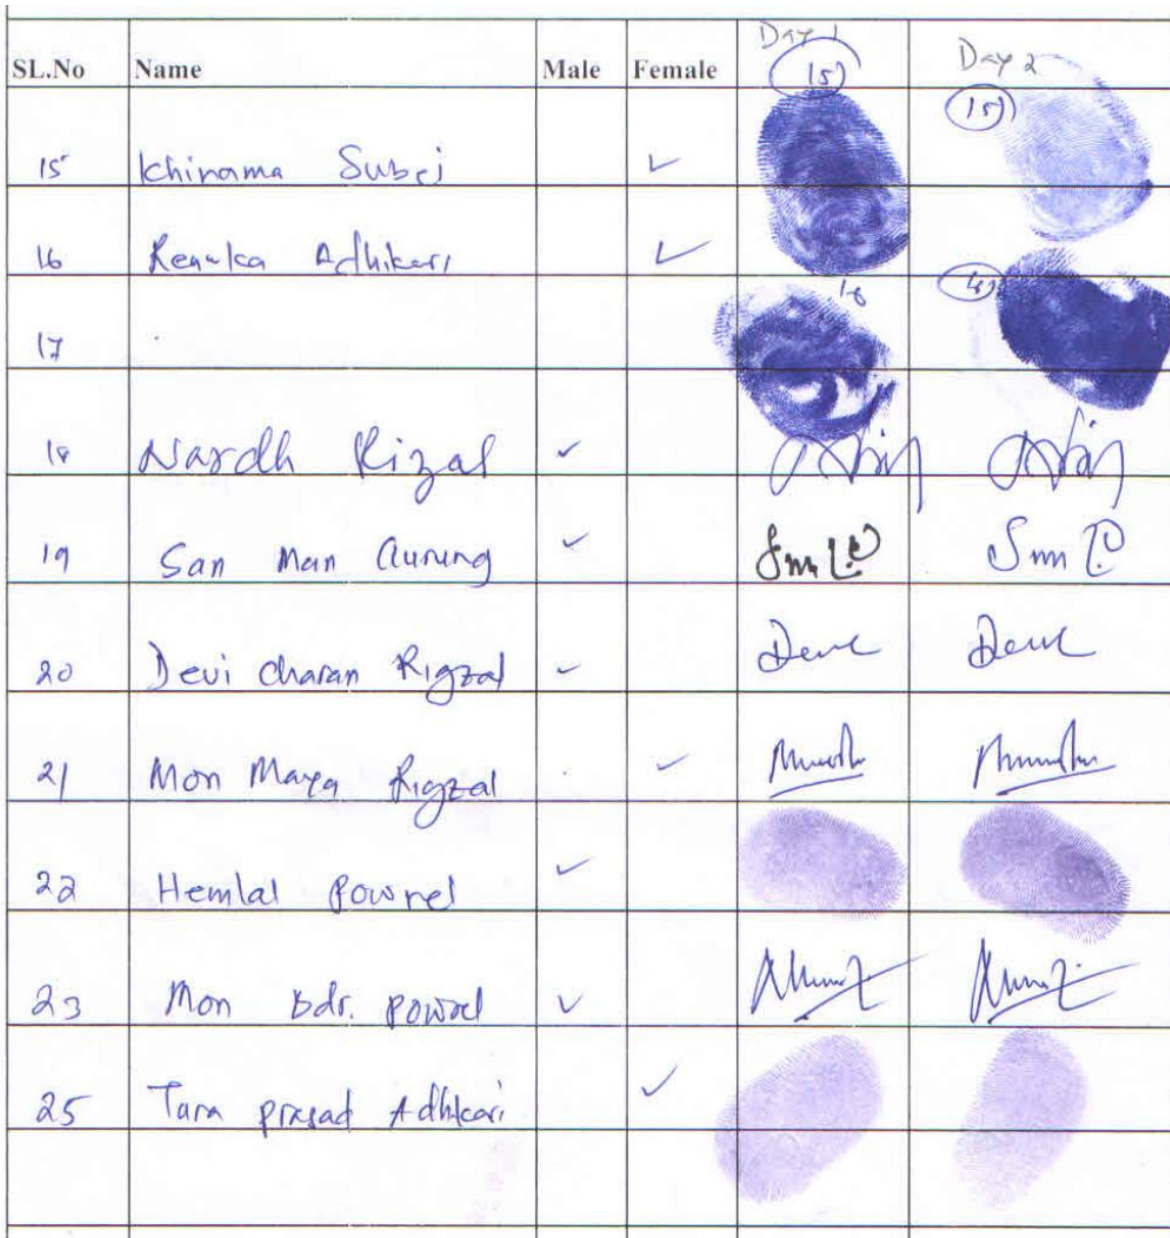 SL.No Name Male Female Day 1 Day 2
15 15
15 Khinama Subei ✓
16 Renuka Adhikari ✓
16 16
17
18 Nardh Rizal ✓
19 San Man Gurung ✓
20 Devi charan Rigzal ✓
21 Mon Maya Rigzal ✓
22 Hemlal Powrel ✓
23 Mon Bdr. Powrel ✓
25 Tara prasad Adhikari ✓